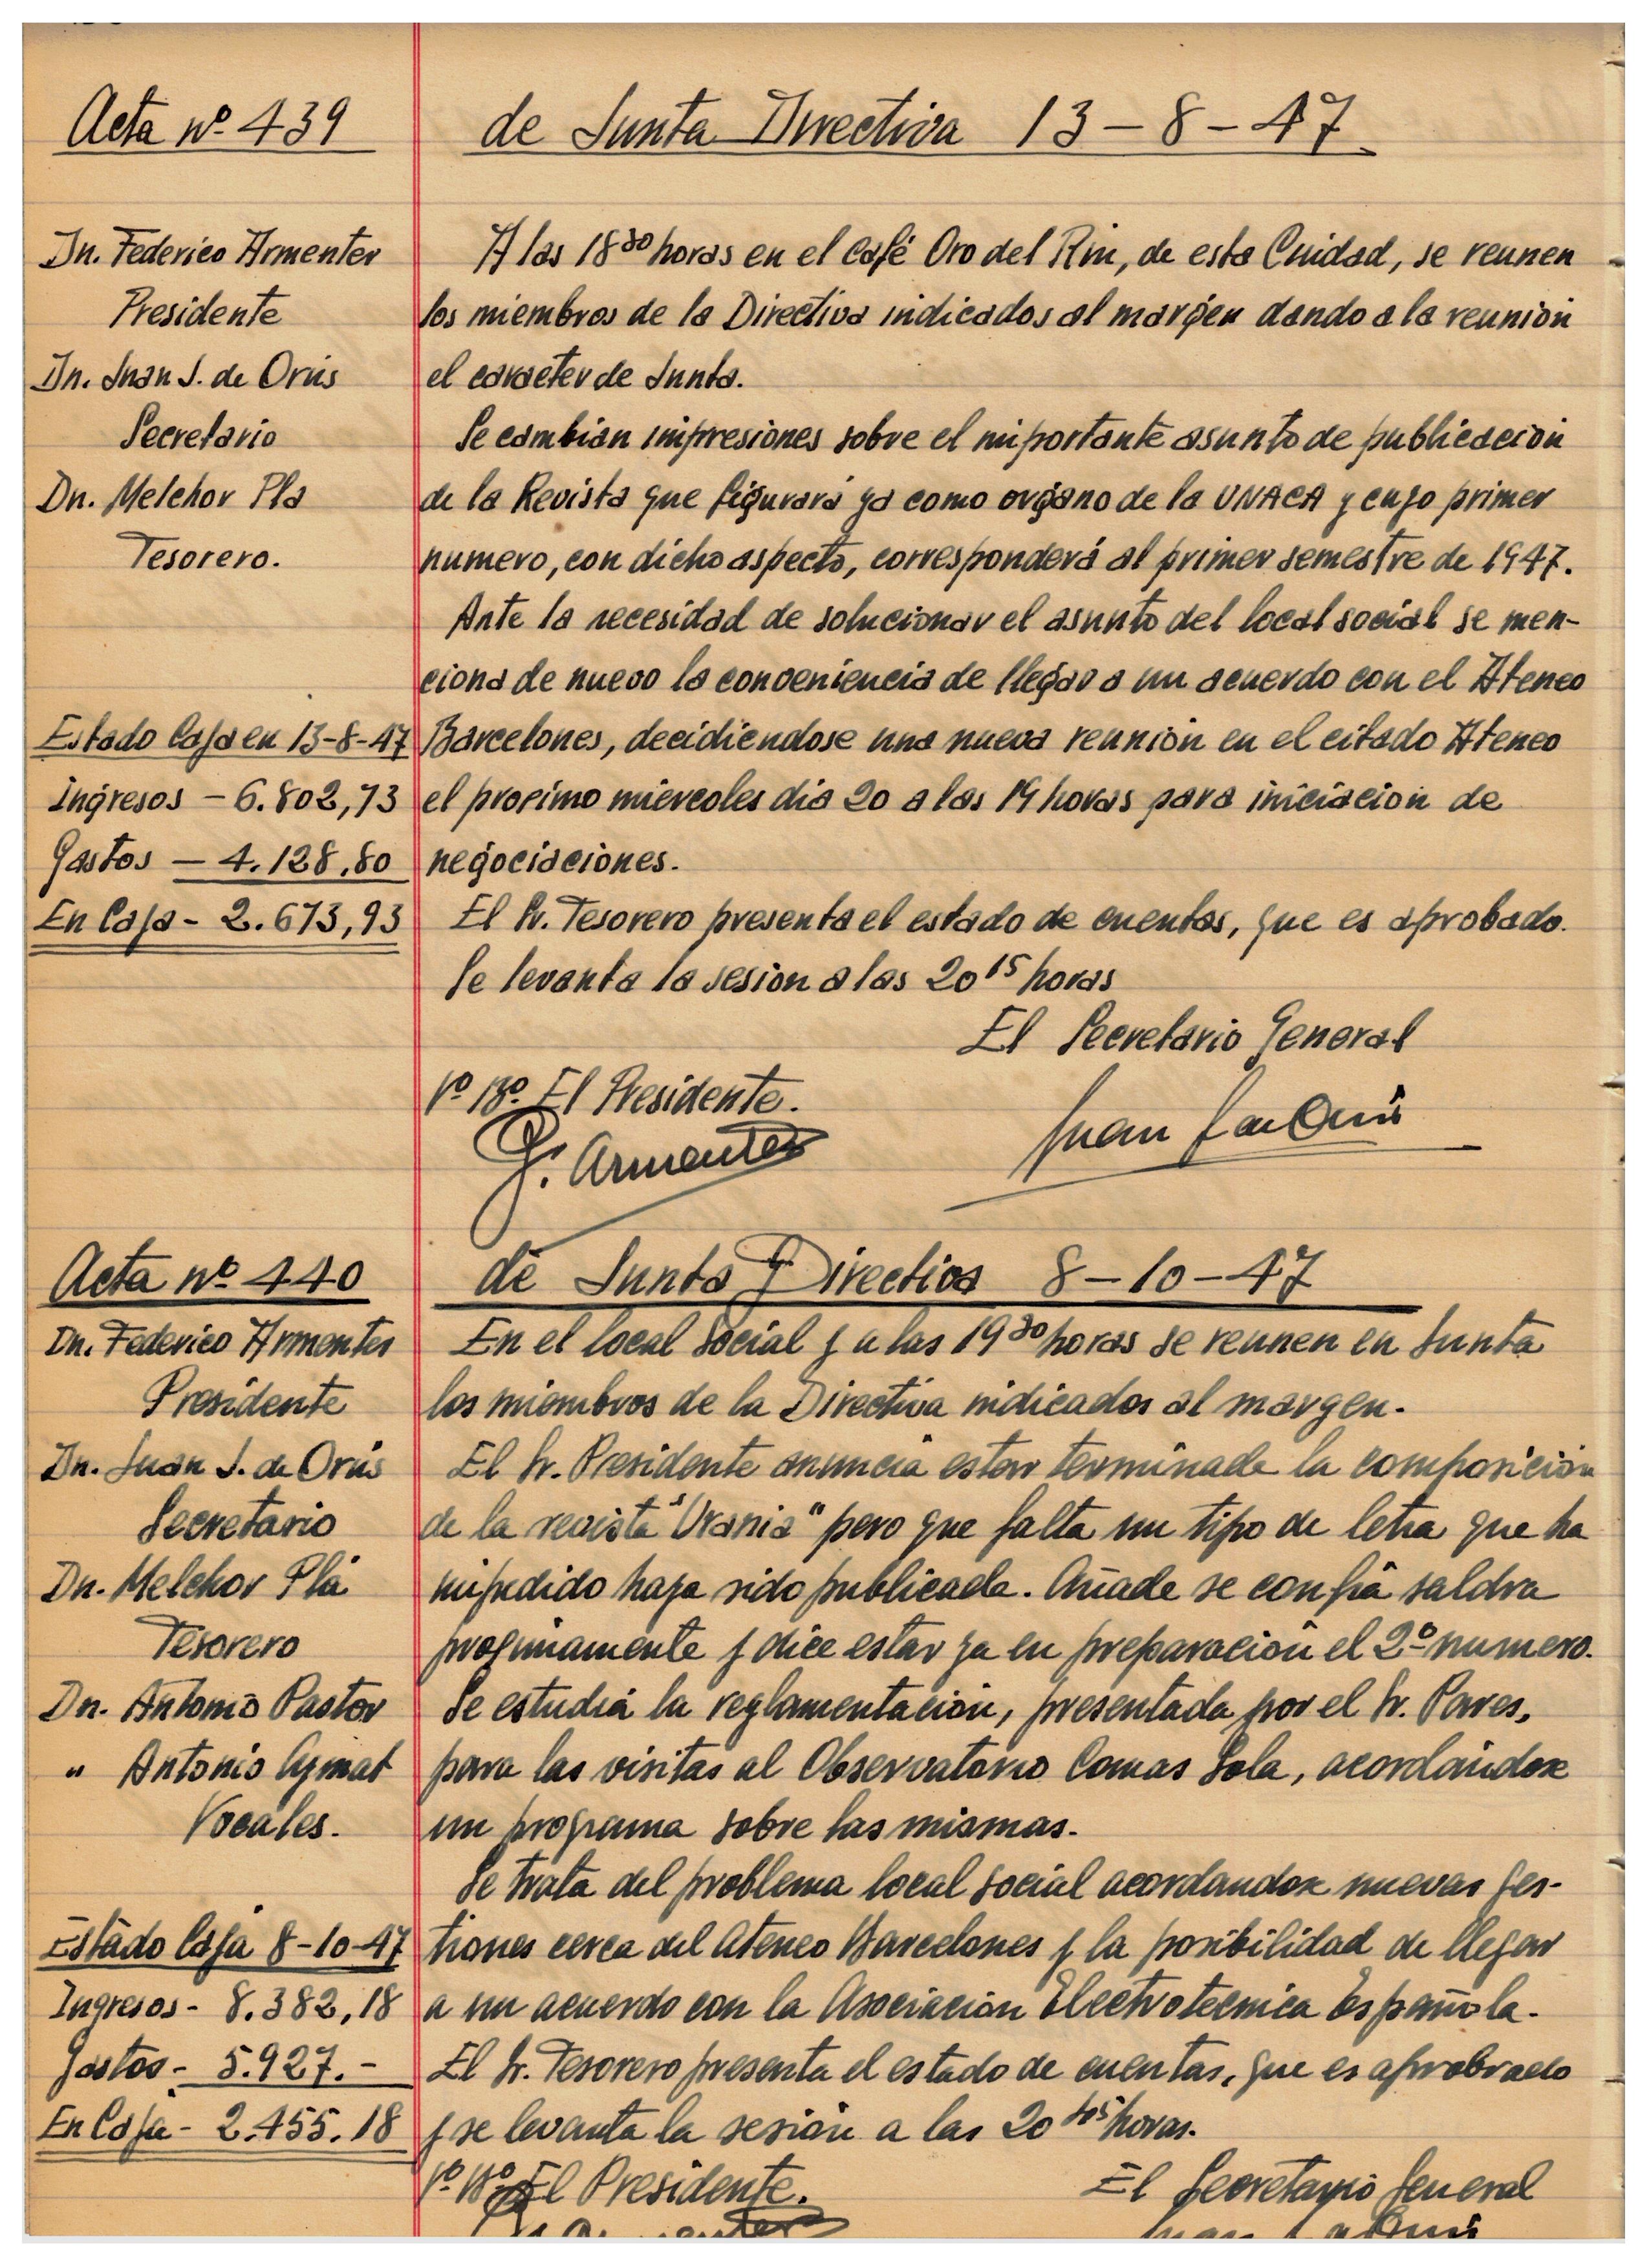 Acta nº 439
de Junta Directiva 13-8-47
Dn. Federico Armenter
Presidente
Dn. Juan J. de Orús
Secretario
Dn. Melchor Pla
Tesorero.
Estado Caja en 13-8-47
Ingresos - 6.802,73
Gastos - 4.128,80
En Caja - 2.673,93
A las 18³⁰ horas en el Café Oro del Rin, de esta Ciudad, se reunen
los miembros de la Directiva indicados al margen dando a la reunion
el caracter de Junta.
Se cambian impresiones sobre el importante asunto de publicación
de la Revista que figurará ya como organo de la UNACA y cuyo primer
numero, con dicho aspecto, corresponderá al primer semestre de 1947.
Ante la necesidad de solucionar el asunto del local social se men-
ciona de nuevo la conveniencia de llegar a un acuerdo con el Ateneo
Barcelones, decidiéndose una nueva reunión en el citado Ateneo
el proximo miercoles dia 20 a las 19 horas para iniciacion de
negociaciones.
El Sr. Tesorero presenta el estado de cuentas, que es aprobado.
Se levanta la sesion a las 20¹⁵ horas
El Secretario General
Vº Bº El Presidente.
F. Armenter
Juan J de Orús
Acta nº 440
de Junta Directiva 8-10-47
Dn. Federico Armenter
Presidente
Dn. Juan J. de Orús
Secretario
Dn. Melchor Plá
Tesorero
Dn. Antonio Pastor
" Antonio Aymat
Vocales.
Estado Caja 8-10-47
Ingresos - 8.382,18
Gastos - 5.927.-
En Caja - 2.455.18
En el local social y a las 19³⁰ horas se reunen en Junta
los miembros de la Directiva indicados al margen.
El Sr. Presidente anuncia estar terminada la composición
de la revista "Urania" pero que falta un tipo de letra que ha
impedido haya sido publicada. Añade se confia saldra
proximamente y dice estar ya en preparación el 2º numero.
Se estudia la reglamentación, presentada por el Sr. Pares,
para las visitas al Observatorio Comas Sola, acordándose
un programa sobre las mismas.
Se trata del problema local social acordandose nuevas ges-
tiones cerca del Ateneo Barcelones y la posibilidad de llegar
a un acuerdo con la Asociacion Electrotecnica Española.
El Sr. Tesorero presenta el estado de cuentas, que es aprobado
y se levanta la sesión a las 20 horas.
Vº Bº El Presidente.
El Secretario General